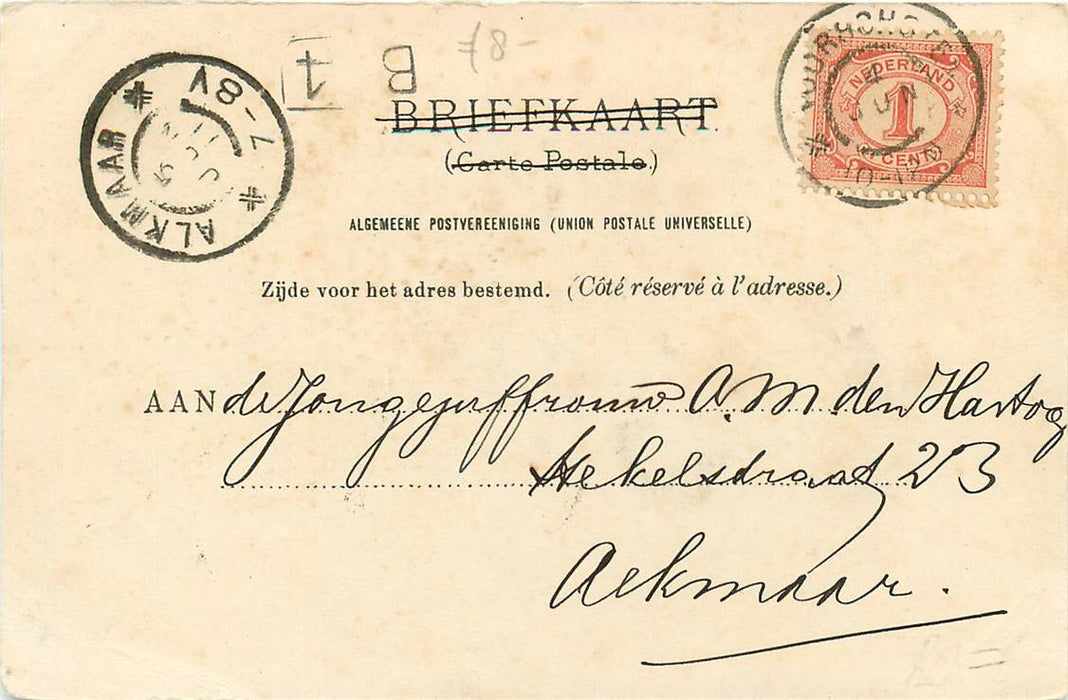 78-
B
1
BRIEFKAART
(Carte Postale.)
ALGEMEENE POSTVEREENIGING (UNION POSTALE UNIVERSELLE)
Zijde voor het adres bestemd. (Côté réservé à l'adresse.)
AAN de Jongejuffrouw A. M den Hartog
Hekelstraat 23
Alkmaar.
NEDERLAND
1
CENT
10-12
ALKMAAR
7-8V
JUN